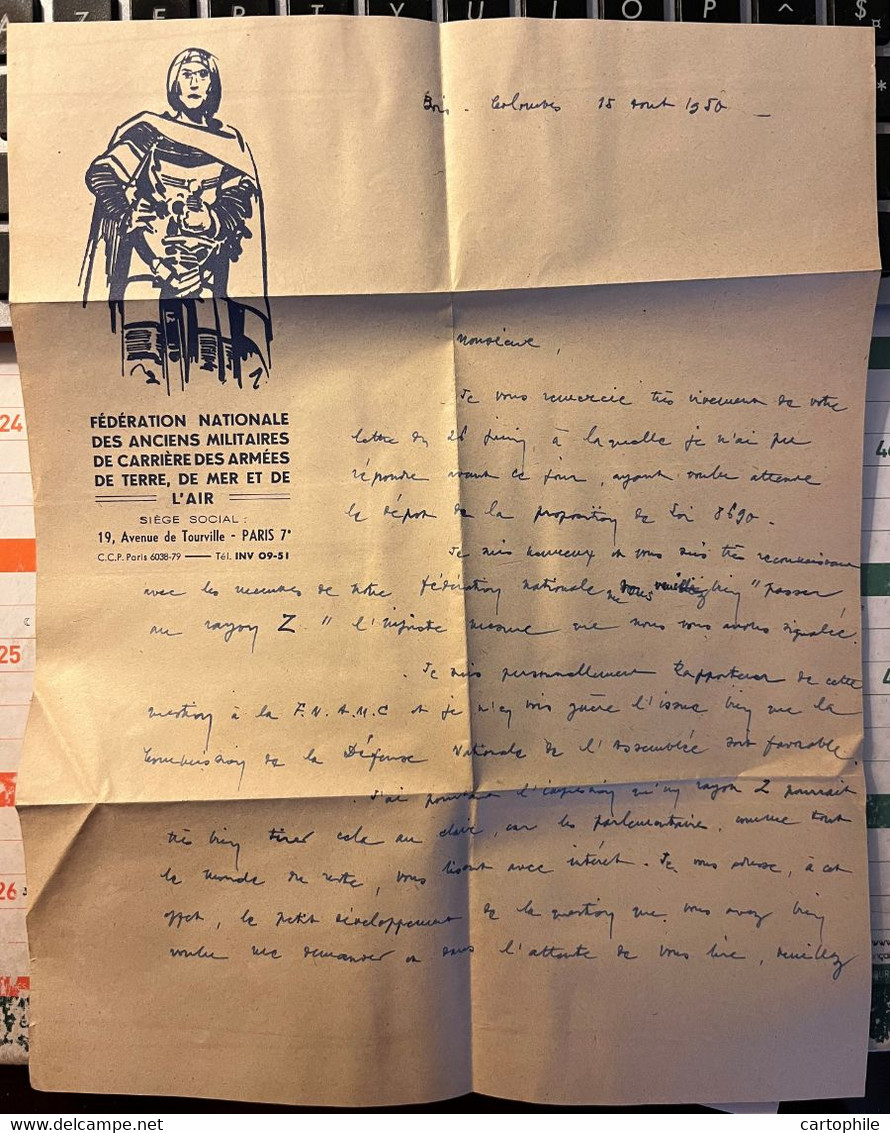 A Z E R T Y U I O P ^ $
Bois-Colombes 15 aout 1950
Monsieur,
Je vous remercie très vivement de votre
lettre du 28 juin, à laquelle je n'ai pu
répondre avant ce jour, ayant voulu attendre
le dépôt de la proposition de loi 8590.
FÉDÉRATION NATIONALE
DES ANCIENS MILITAIRES
DE CARRIÈRE DES ARMÉES
DE TERRE, DE MER ET DE
L'AIR
SIÈGE SOCIAL :
19, Avenue de Tourville - PARIS 7e
C.C.P. Paris 6038-79 — Tél. INV 09-51
Je suis heureux et vous suis très reconnaissant
avec les membres de notre fédération nationale bien "passer
au rayon Z" l'injuste mesure que nous vous avons signalée.
Je suis personnellement Rapporteur de cette
question à la F.N.A.M.C et je n'en vois guère l'issue bien que la
Commission de la Défense Nationale de l'Assemblée soit favorable.
J'ai pourtant l'impression qu'un rayon Z pourrait
très bien tirer cela au clair, car les parlementaires, comme tout
le monde du reste, vous lisent avec intérêt. Je vous adresse, à cet
effet, le petit développement de la question que vous avez bien
voulu me demander et dans l'attente de vous lire, veuillez
24
25
26
www.delcampe.net
cartophile